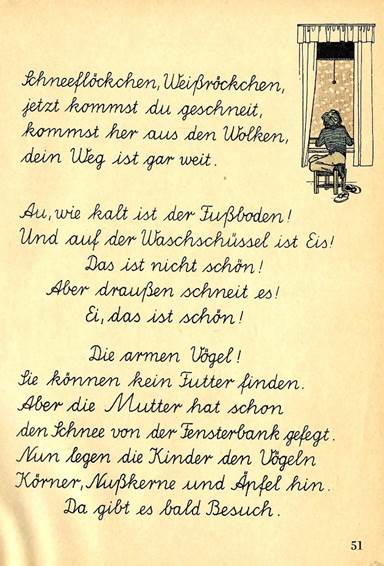 Schneeflöckchen, Weißröckchen,
jetzt kommst du geschneit,
kommst her aus den Wolken,
dein Weg ist gar weit.
Au, wie kalt ist der Fußboden!
Und auf der Waschschüssel ist Eis!
Das ist nicht schön!
Aber draußen schneit es!
Ei, das ist schön!
Die armen Vögel!
Sie können kein Futter finden.
Aber die Mutter hat schon
den Schnee von der Fensterbank gefegt.
Nun legen die Kinder den Vögeln
Körner, Nußkerne und Äpfel hin.
Da gibt es bald Besuch.
51